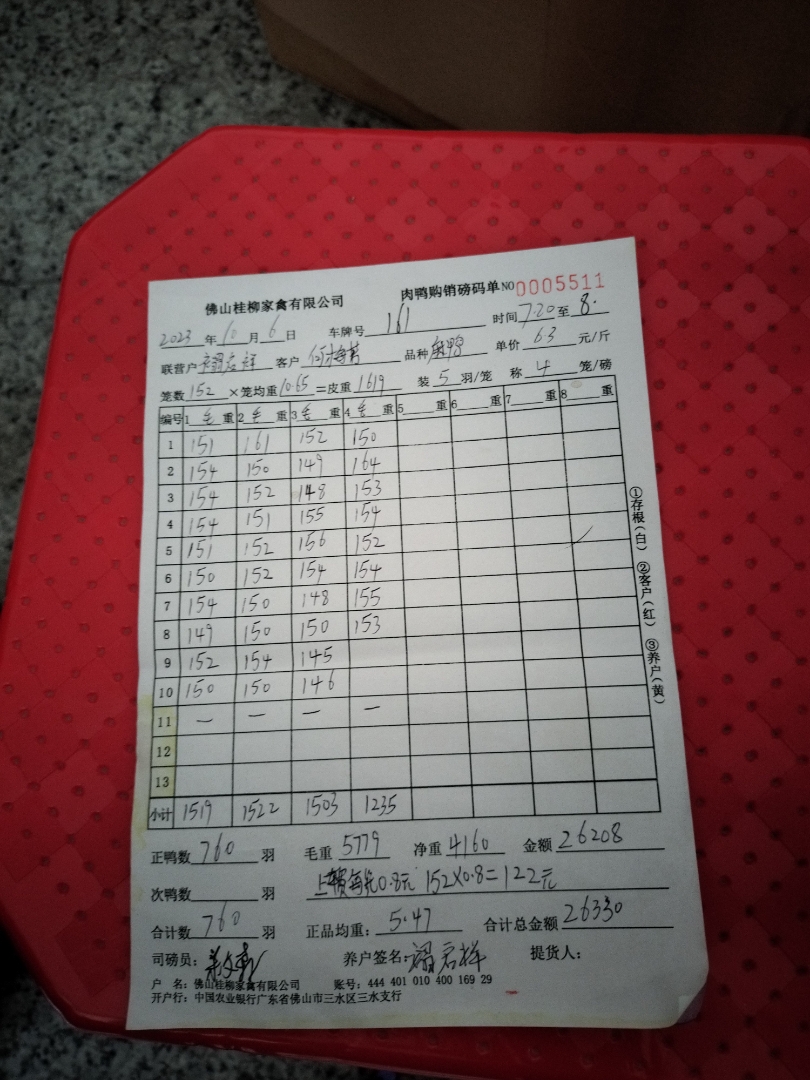 佛山桂柳家禽有限公司 肉鸭购销磅码单 NO 0005511
2023 年 10 月 6 日 车牌号 161 时间 7.20 至 8.
联营户 客户 品种 麻鸭 单价 6.3 元/斤
笼数 152 ×笼均重 10.65 =皮重 1619 装 5 羽/笼 称 4 笼/磅
编号 1 毛 重 2 毛 重 3 毛 重 4 毛 重 5 重 6 重 7 重 8 重
1 151 161 152 150
2 154 150 149 164
3 154 152 148 153
4 154 151 155 154
5 151 152 156 152
6 150 152 154 154
7 154 150 148 155
8 149 150 150 153
9 152 154 145
10 150 150 146
11 — — — —
12
13
小计 1519 1522 1503 1235
①存根(白) ②客户(红) ③养户(黄)
正鸭数 760 羽 毛重 5779 净重 4160 金额 26208
次鸭数 羽 0.8元 152×0.8=122元
合计数 760 羽 正品均重: 5.47 合计总金额 26330
司磅员: 养户签名: 提货人:
户 名: 佛山桂柳家禽有限公司 账号: 444 401 010 400 169 29
开户行: 中国农业银行广东省佛山市三水区三水支行